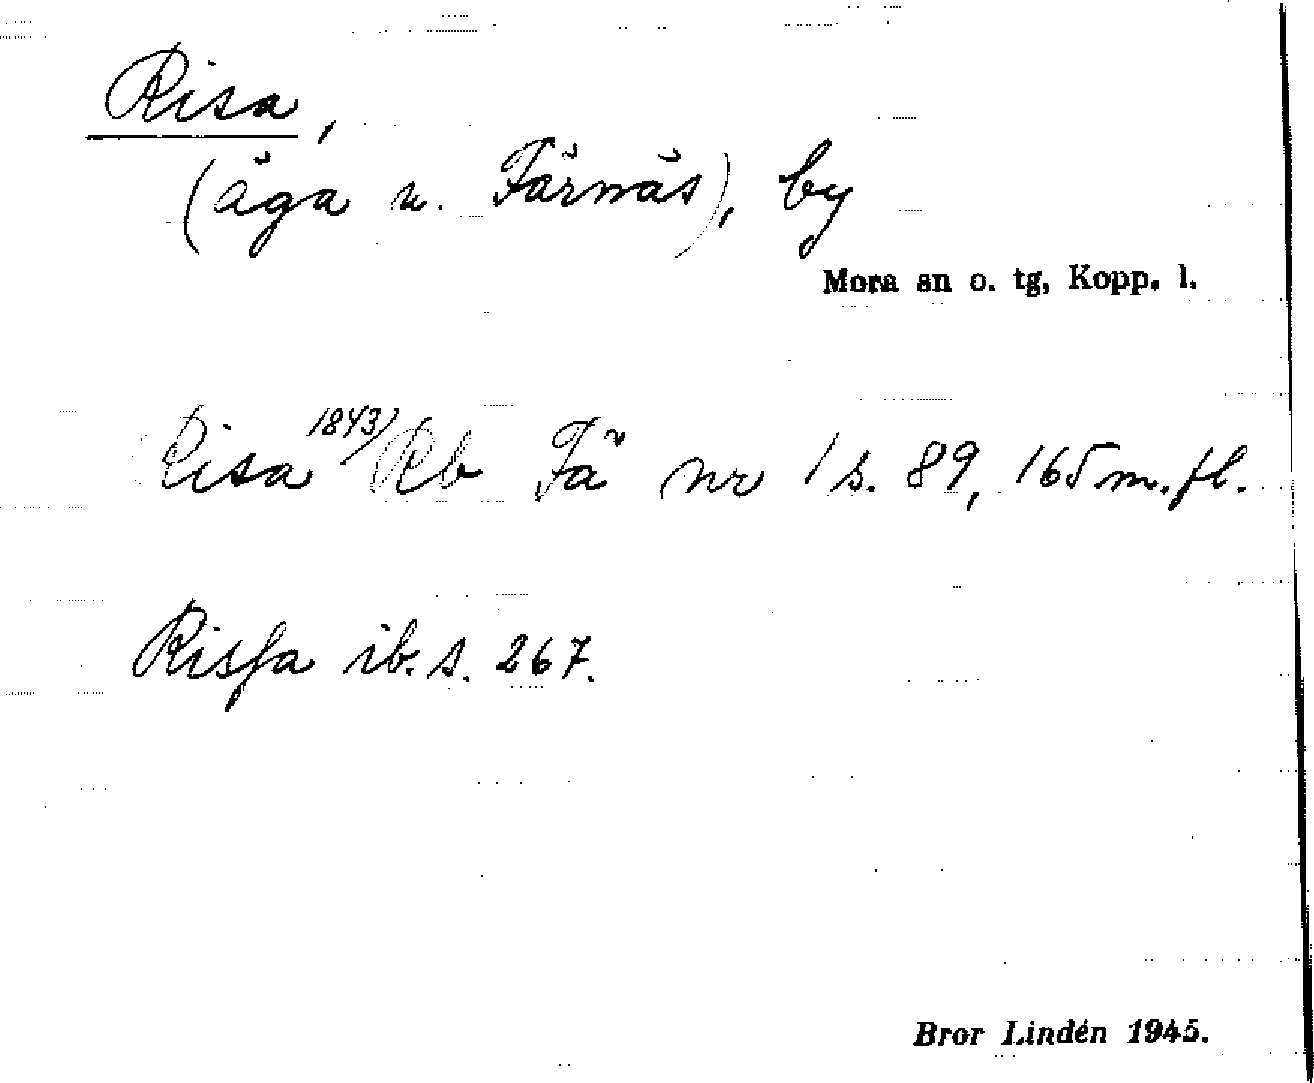 Risa,
(äga u. Färnäs), by
Mora sn o. tg, Kopp. l.
Risa 1843) Rb Fä nr 1 s. 89, 165 m. fl.
Rissa ib. s. 267.
Bror Lindén 1945.